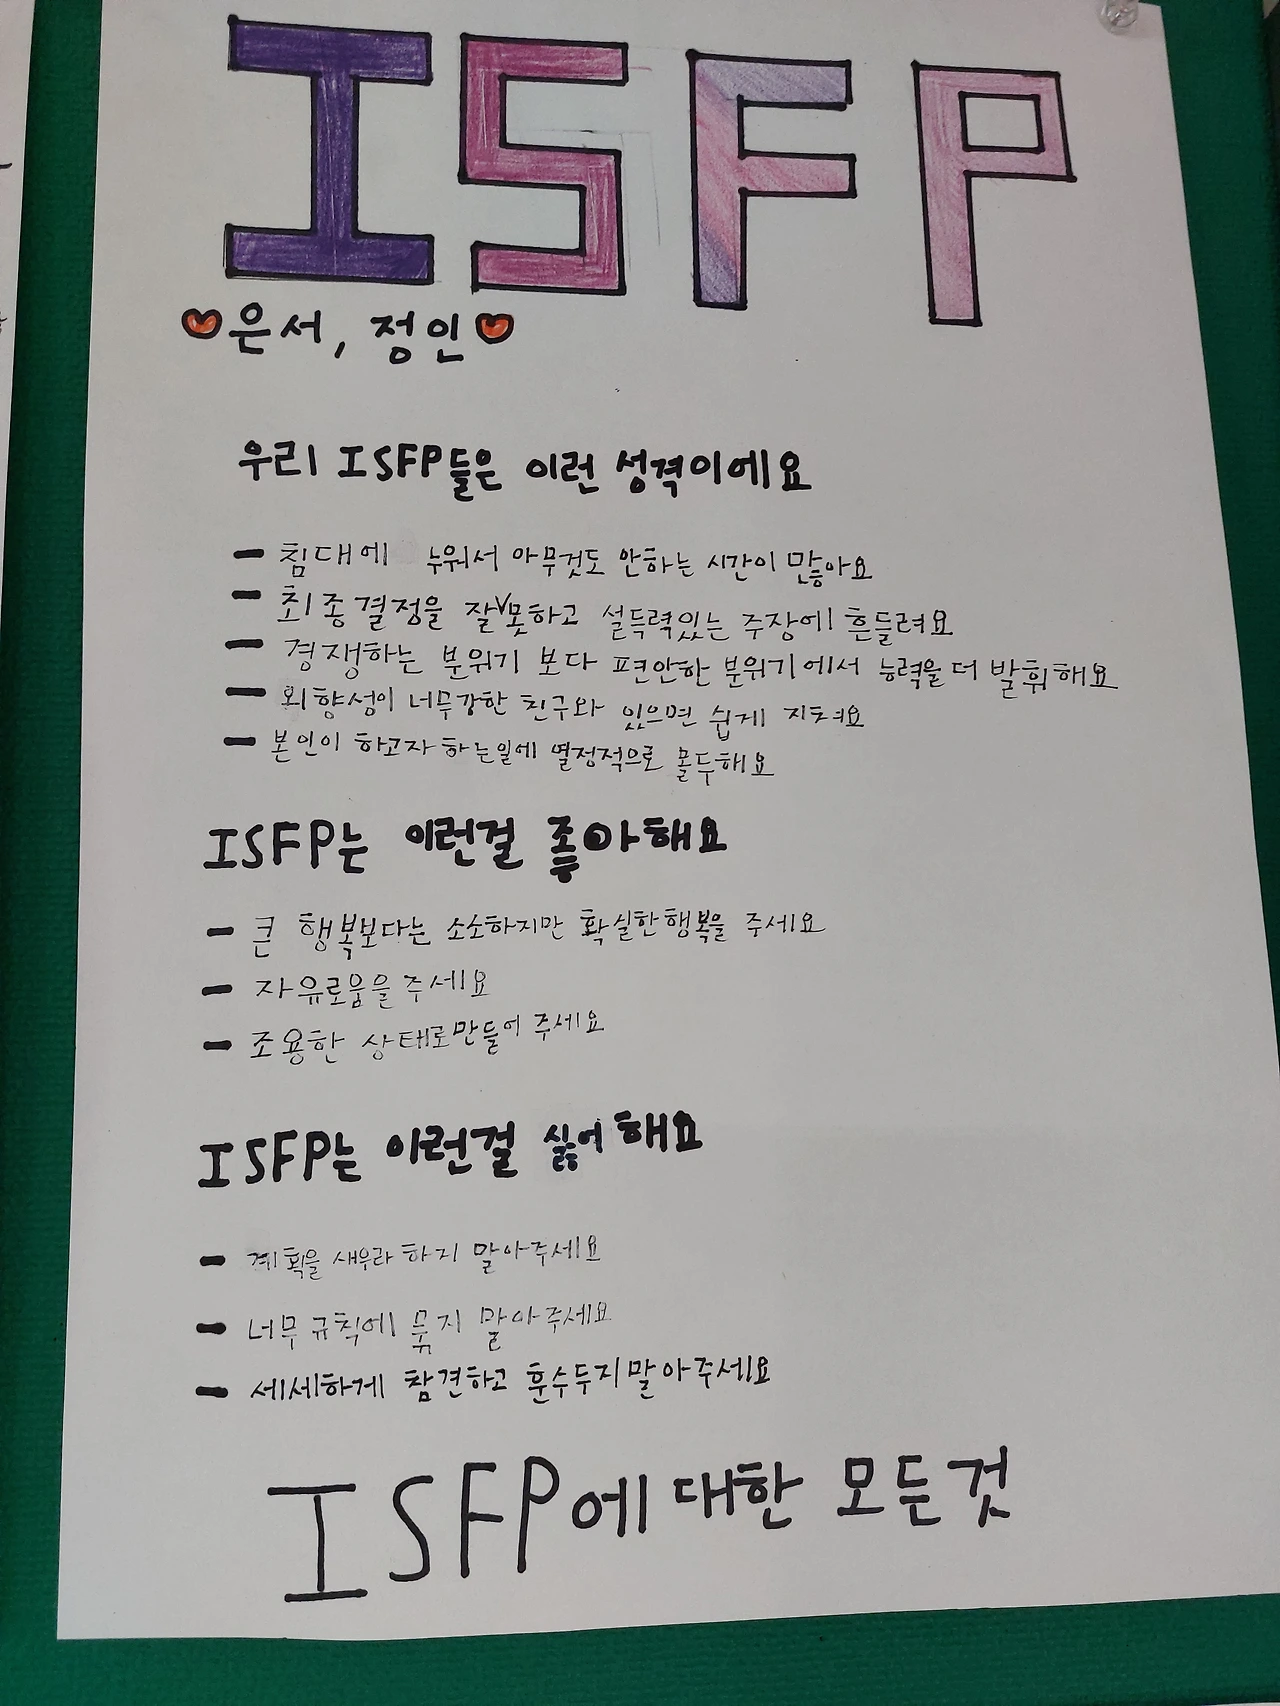 ISFP
은서, 정인
우리 ISFP들은 이런 성격이에요
- 침대에 누워서 아무것도 안하는 시간이 많아요
- 최종결정을 잘 못하고 설득력있는 주장에 흔들려요
- 경쟁하는 분위기 보다 편안한 분위기에서 능력을 더 발휘해요
- 외향성이 너무강한 친구와 있으면 쉽게 지쳐요
- 본인이 하고자 하는일에 열정적으로 몰두해요
ISFP는 이런걸 좋아해요
- 큰 행복보다는 소소하지만 확실한행복을 주세요
- 자유로움을 주세요
- 조용한 상태로만들어 주세요
ISFP는 이런걸 싫어해요
- 계획을 새우라 하지 말아주세요
- 너무 규칙에 묶지 말아주세요
- 세세하게 참견하고 훈수두지말아주세요
ISFP에 대한 모든것